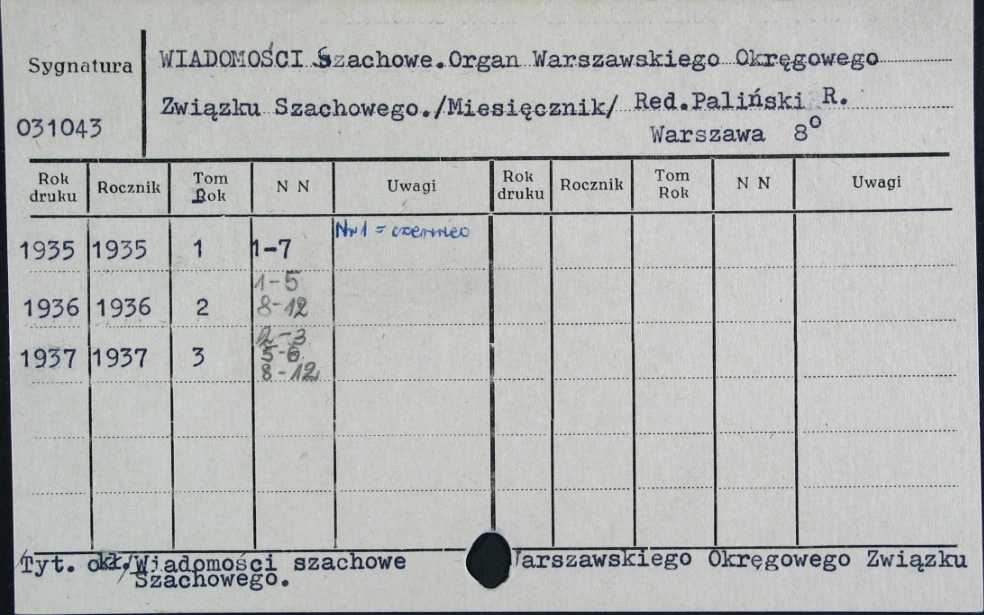 Sygnatura
031043
WIADOMOŚCI Szachowe. Organ Warszawskiego Okręgowego
Związku Szachowego./Miesięcznik/ Red.Paliński R.
Warszawa 8°
Rok druku Rocznik Tom Rok N N Uwagi Rok druku Rocznik Tom Rok N N Uwagi
1935 1935 1 1-7 Nr 1 = czerwiec
1936 1936 2 1-5
8-12
1937 1937 3 2-3
5-6
8-12
/Tyt. okł./Wiadomości szachowe Warszawskiego Okręgowego Związku
Szachowego.